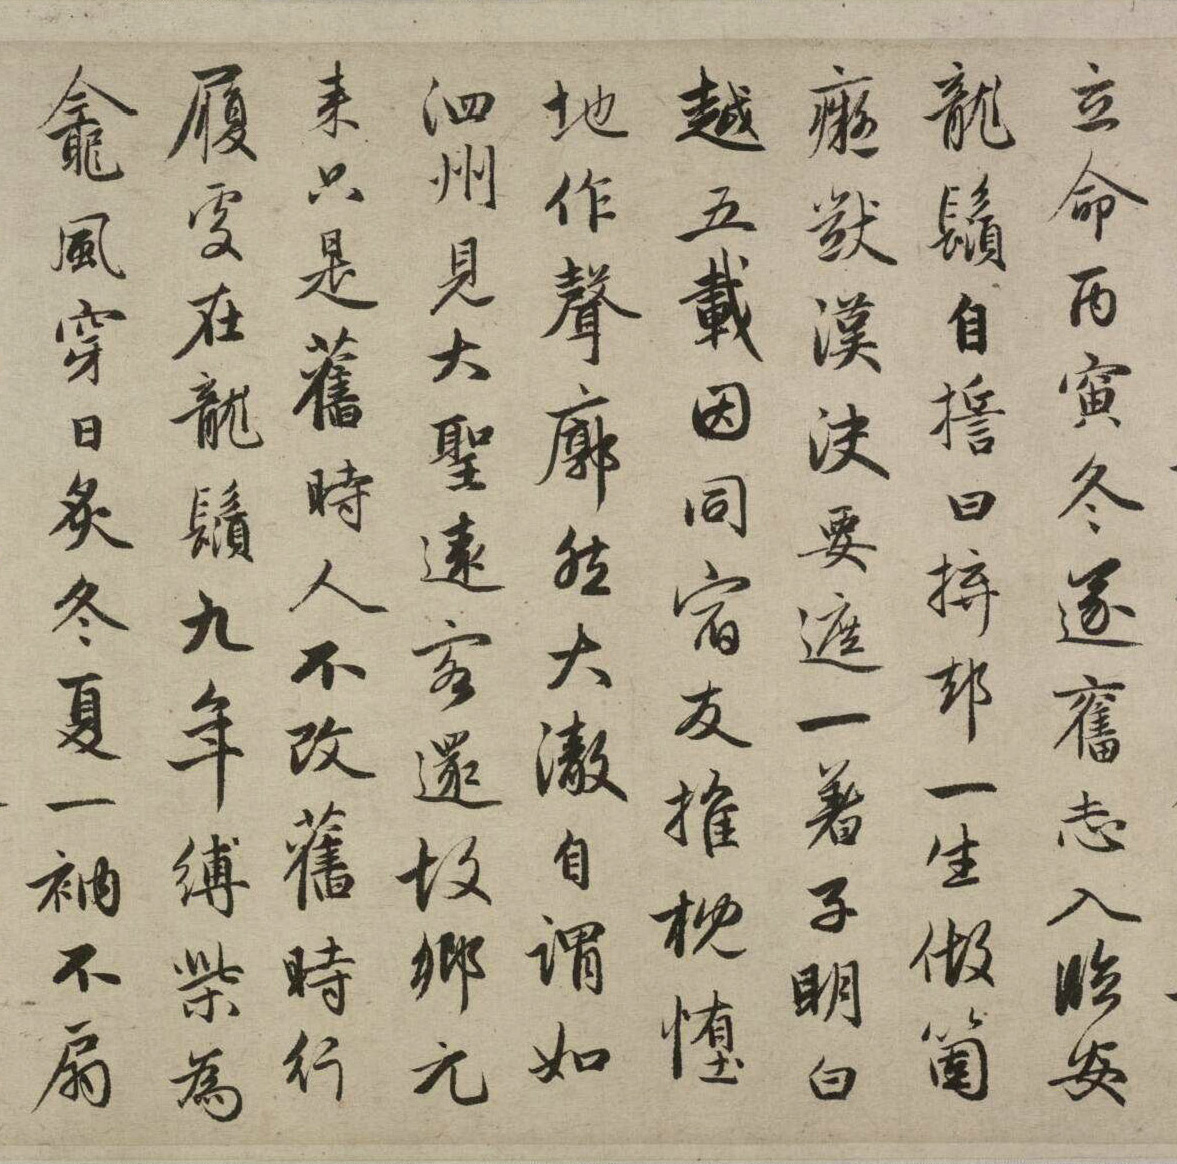 立命丙寅冬遂奮志入臨安
龍鬚自誓曰拚却一生做箇
癡獃漢決要遮一著子明白
越五載因同宿友推枕墮
地作聲廓然大澈自謂如
泗州見大聖遠客還故鄉元
来只是舊時人不改舊時行
履處在龍鬚九年縛柴為
龕風穿日炙冬夏一衲不扇